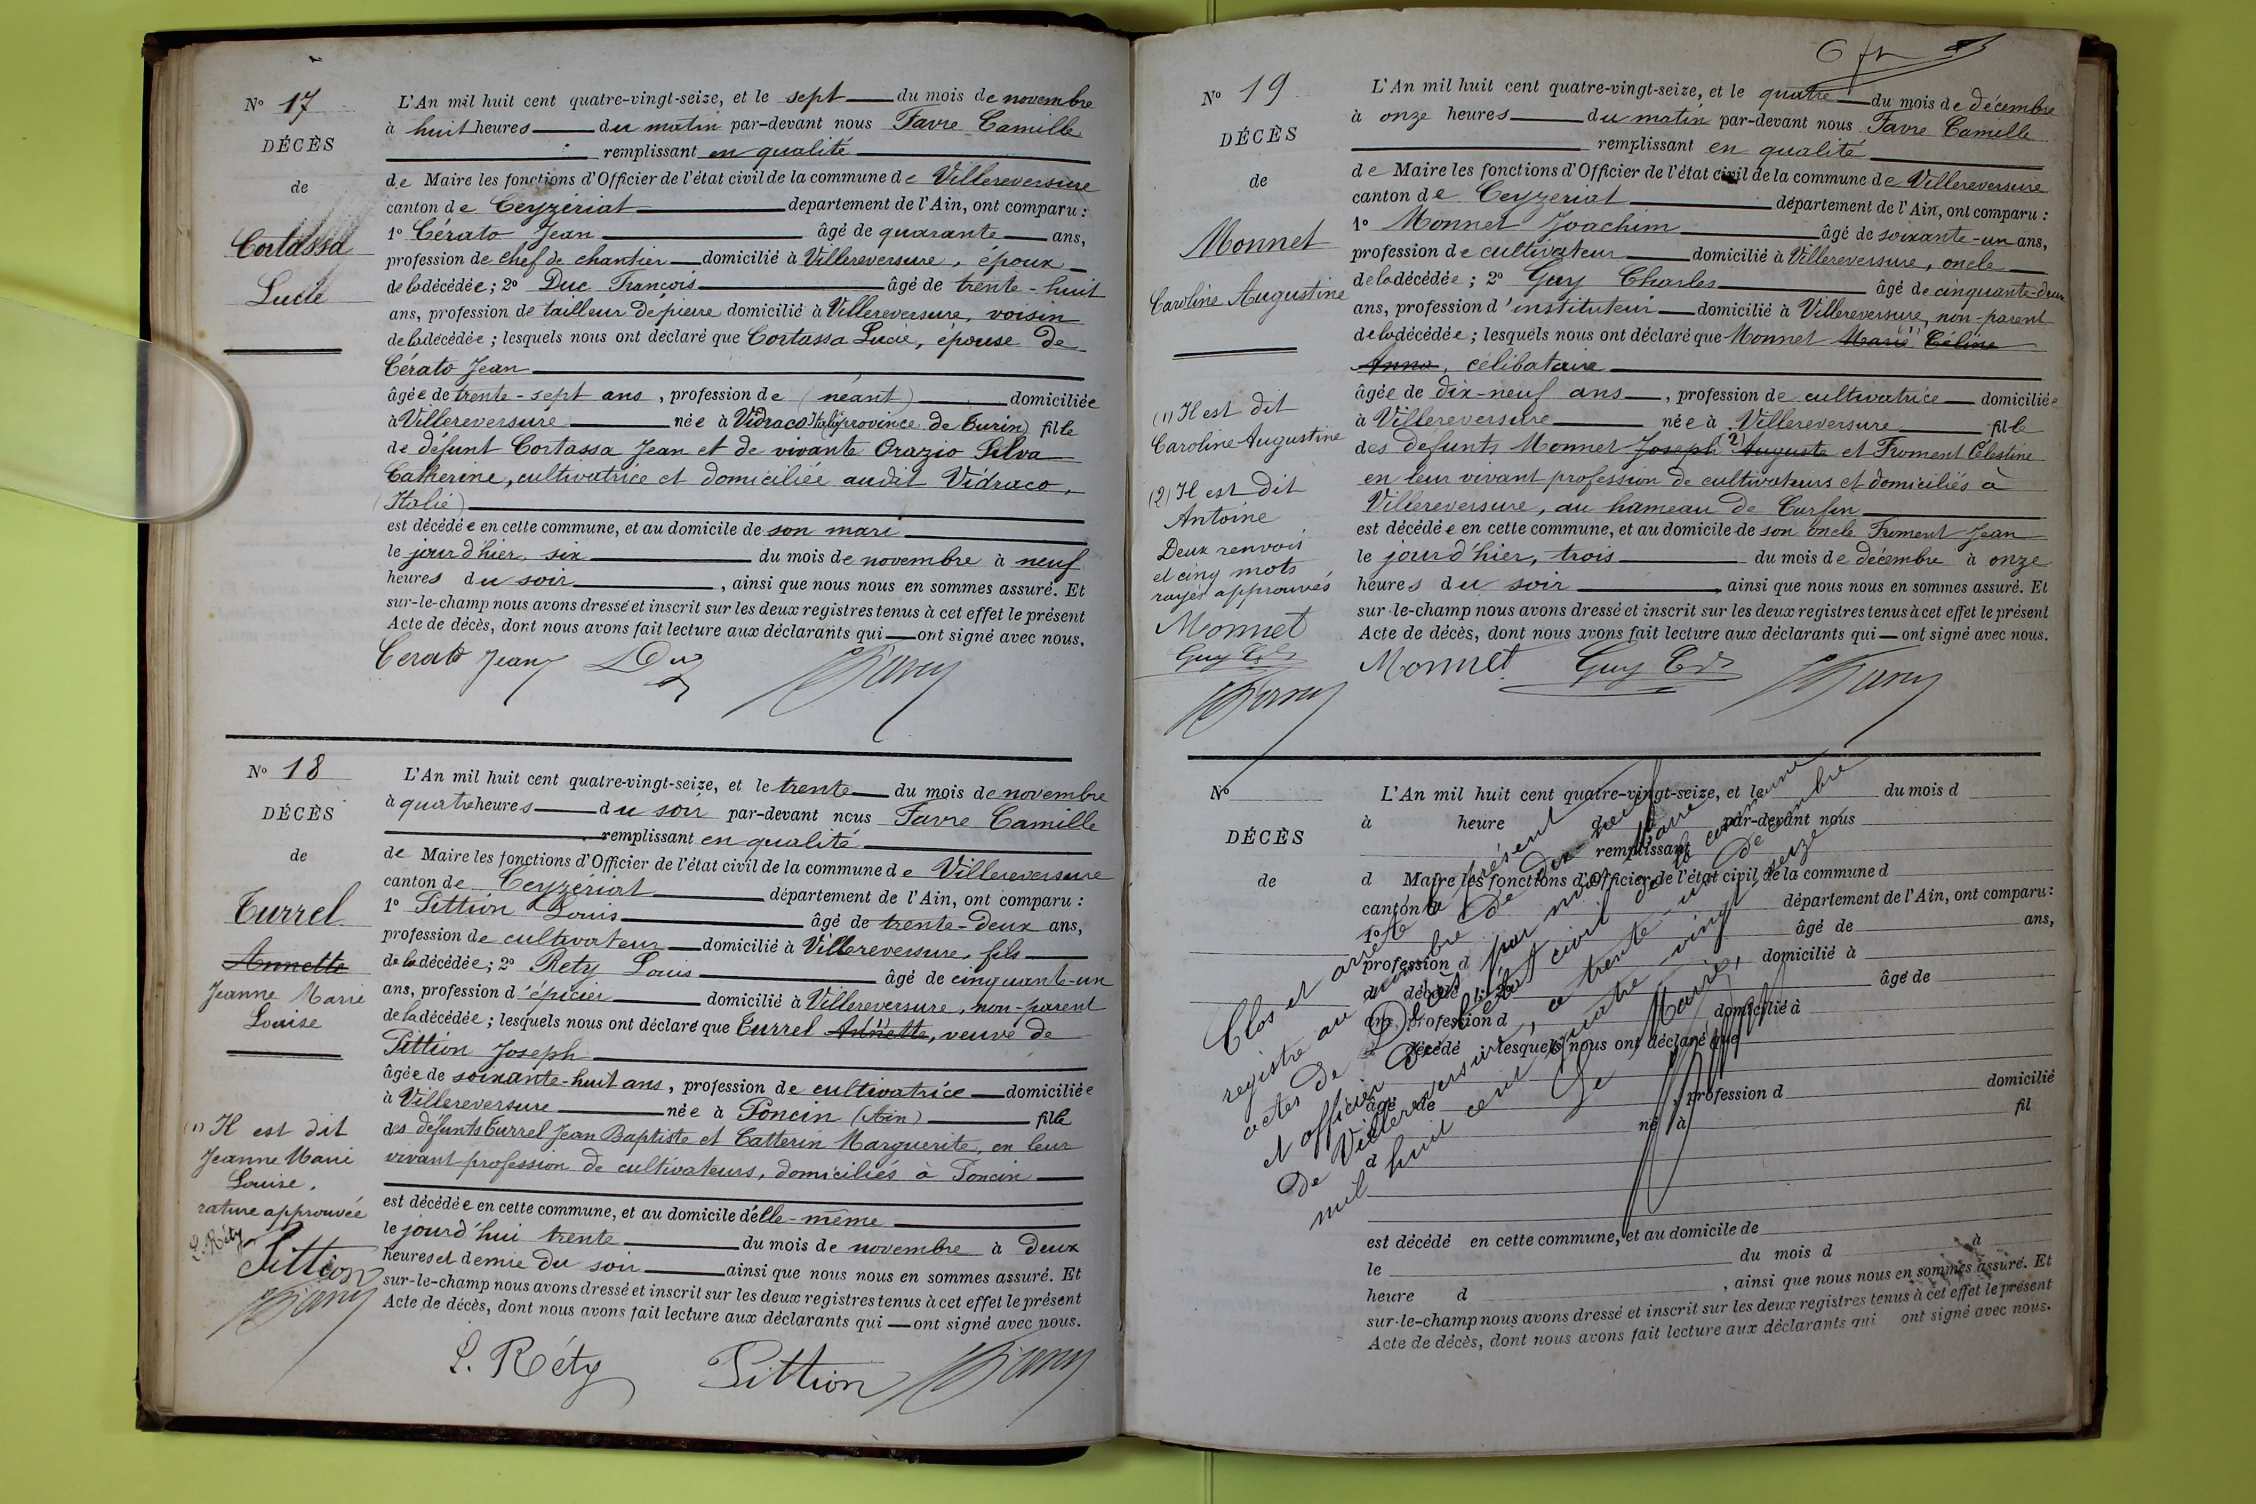 Nº 17
DÉCÈS
de
Cortassa
Lucie
L'An mil huit cent quatre-vingt-seize, et le sept du mois de novembre
à huit heures du matin par-devant nous Favre Camille
remplissant en qualité
de Maire les fonctions d'Officier de l'état civil de la commune de Villereversure
canton de Ceyzériat département de l'Ain, ont comparu :
1º Cérato Jean âgé de quarante ans,
profession de chef de chantier domicilié à Villereversure, époux
de la décédée ; 2º Duc François âgé de trente-huit
ans, profession de tailleur de pierre domicilié à Villereversure, voisin
de la décédée ; lesquels nous ont déclaré que Cortassa Lucie, épouse de
Cérato Jean
âgée de trente-sept ans, profession de (néant) domiciliée
à Villereversure née à Vidraco Italie (province de Turin) fille
de défunt Cortassa Jean et de vivante Orazio Silva
Catherine, cultivatrice et domiciliée audit Vidraco,
(Italie)
est décédée en cette commune, et au domicile de son mari
le jour d'hier six du mois de novembre à neuf
heures du soir, ainsi que nous nous en sommes assuré. Et
sur-le-champ nous avons dressé et inscrit sur les deux registres tenus à cet effet le présent
Acte de décès, dont nous avons fait lecture aux déclarants qui ont signé avec nous.
Cerato Jean Duc
Nº 18
DÉCÈS
de
Turrel
Annette
Jeanne Marie
Louise
(1) Il est dit
Jeanne Marie
Louise.
rature approuvée
L. Réty
Pittion
L'An mil huit cent quatre-vingt-seize, et le trente du mois de novembre
à quatre heures du soir par-devant nous Favre Camille
remplissant en qualité
de Maire les fonctions d'Officier de l'état civil de la commune de Villereversure
canton de Ceyzériat département de l'Ain, ont comparu :
1º Pittion Louis âgé de trente-deux ans,
profession de cultivateur domicilié à Villereversure, fils
de la décédée ; 2º Rety Louis âgé de cinquante-un
ans, profession d'épicier domicilié à Villereversure, non-parent
de la décédée ; lesquels nous ont déclaré que Turrel Annette, veuve de
Pittion Joseph
âgée de soixante-huit ans, profession de cultivatrice domiciliée
à Villereversure née à Poncin (Ain) fille
des défunts Turrel Jean Baptiste et Catterin Marguerite, en leur
vivant profession de cultivateurs, domiciliés à Poncin
est décédée en cette commune, et au domicile d'elle-même
le jourd'hui trente du mois de novembre à deux
heures et demie du soir ainsi que nous nous en sommes assuré. Et
sur-le-champ nous avons dressé et inscrit sur les deux registres tenus à cet effet le présent
Acte de décès, dont nous avons fait lecture aux déclarants qui ont signé avec nous.
L. Réty Pittion
Nº 19
DÉCÈS
de
Monnet
Caroline Augustine
(1) Il est dit
Caroline Augustine
(2) Il est dit
Antoine
Deux renvois
et cinq mots
rayés approuvés
Monnet
L'An mil huit cent quatre-vingt-seize, et le quatre du mois de décembre
à onze heures du matin par-devant nous Favre Camille
remplissant en qualité
de Maire les fonctions d'Officier de l'état civil de la commune de Villereversure
canton de Ceyzériat département de l'Ain, ont comparu :
1º Monnet Joachim âgé de soixante-un ans,
profession de cultivateur domicilié à Villereversure, oncle
de la décédée ; 2º Guy Charles âgé de cinquante-deux
ans, profession d'instituteur domicilié à Villereversure, non-parent
de la décédée ; lesquels nous ont déclaré que Monnet Marie (1) Céline
Anna, célibataire
âgée de dix-neuf ans, profession de cultivatrice domiciliée
à Villereversure née à Villereversure fille
des défunts Monnet Joseph (2) Auguste et Froment Célestine
en leur vivant profession de cultivateurs et domiciliés à
Villereversure, au hameau de Cursin
est décédée en cette commune, et au domicile de son oncle Froment Jean
le jour d'hier, trois du mois de décembre à onze
heures du soir, ainsi que nous nous en sommes assuré. Et
sur-le-champ nous avons dressé et inscrit sur les deux registres tenus à cet effet le présent
Acte de décès, dont nous avons fait lecture aux déclarants qui ont signé avec nous.
Monnet Guy
Nº
DÉCÈS
de
L'An mil huit cent quatre-vingt-seize, et le du mois d
à heure du par-devant nous
remplissant
d Maire les fonctions d'Officier de l'état civil de la commune d
canton d département de l'Ain, ont comparu :
1º âgé de ans,
profession d domicilié à
d décédé ; 2º âgé de
ans, profession d domicilié à
d décédé ; lesquels nous ont déclaré que
âgé de , profession d domicilié
à né à fil
d
est décédé en cette commune, et au domicile de
le du mois d à
heure d , ainsi que nous nous en sommes assuré. Et
sur-le-champ nous avons dressé et inscrit sur les deux registres tenus à cet effet le présent
Acte de décès, dont nous avons fait lecture aux déclarants qui ont signé avec nous.
Clos et arrêté le présent
registre au nombre de dix-neuf
actes de Décès par nous Maire
et officier de l'état civil de la commune
de Villereversure, ce trente-un décembre
mil huit cent quatre-vingt-seize
Le Maire,